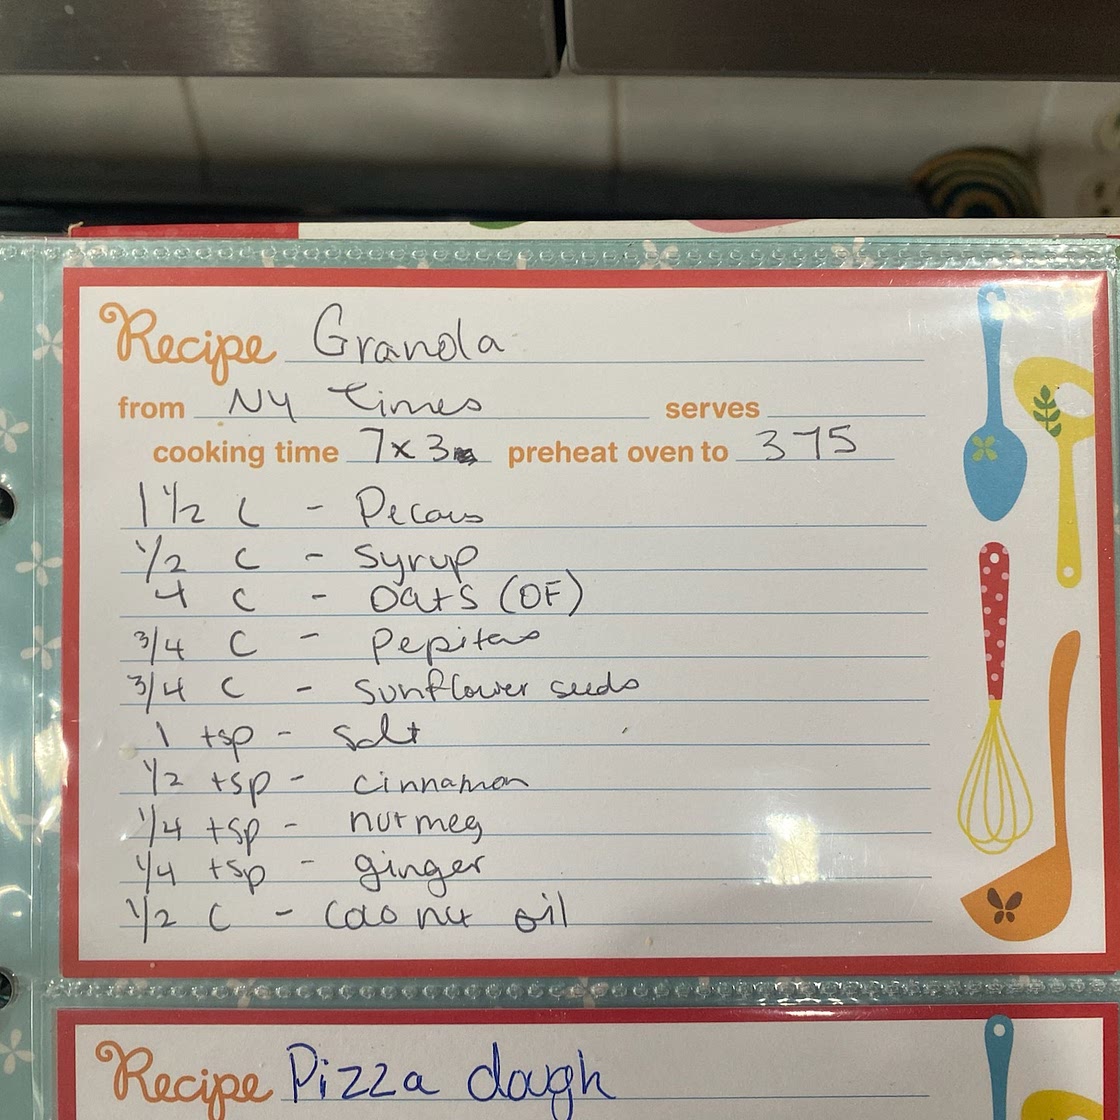 Recipe Granola
from NY Times serves
cooking time 7x3 preheat oven to 375
1 1/2 C - Pecans
1/2 C - Syrup
4 C - Oats (OF)
3/4 C - Pepitas
3/4 C - Sunflower seeds
1 tsp - Salt
1/2 tsp - cinnamon
1/4 tsp - nutmeg
1/4 tsp - ginger
1/2 C - Coconut oil
Recipe Pizza dough